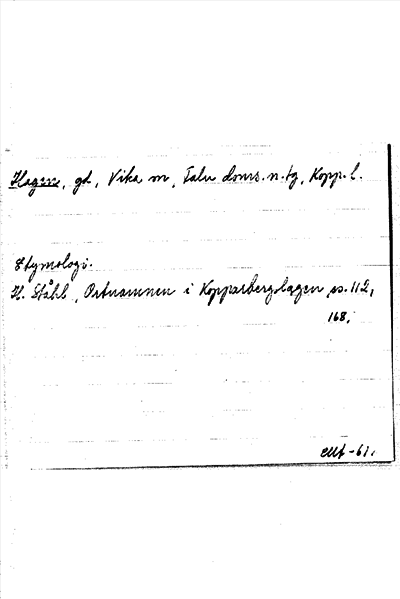 Hagen, gd, Vika sn, Falu doms. n. tg, Kopp. l.
Etymologi.
H. Ståhl, Ortnamnen i Kopparbergslagen, ss. 112,
168,
-61.